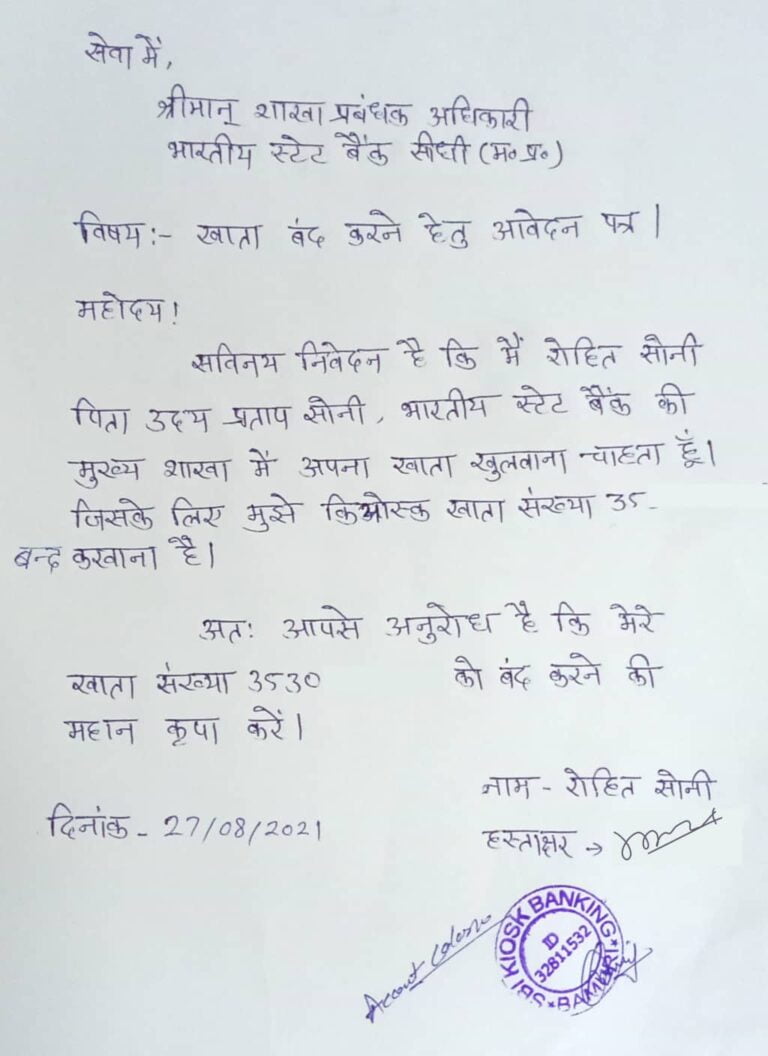 सेवा में,
श्रीमान् शाखा प्रबंधक अधिकारी
भारतीय स्टेट बैंक सीधी (म॰ प्र॰)
विषय :- खाता बंद करने हेतु आवेदन पत्र |
महोदय !
सविनय निवेदन है कि मैं रोहित सोनी
पिता उदय प्रताप सोनी, भारतीय स्टेट बैंक की
मुख्य शाखा में अपना खाता खुलवाना चाहता हूँ।
जिसके लिए मुझे किओस्क खाता संख्या 35-
बन्द करवाना है।
अतः आपसे अनुरोध है कि मेरे
खाता संख्या 3530 को बंद करने की
महान कृपा करें।
नाम - रोहित सोनी
दिनांक - 27/08/2021
हस्ताक्षर →
SBI KIOSK BANKING
ID
32811532